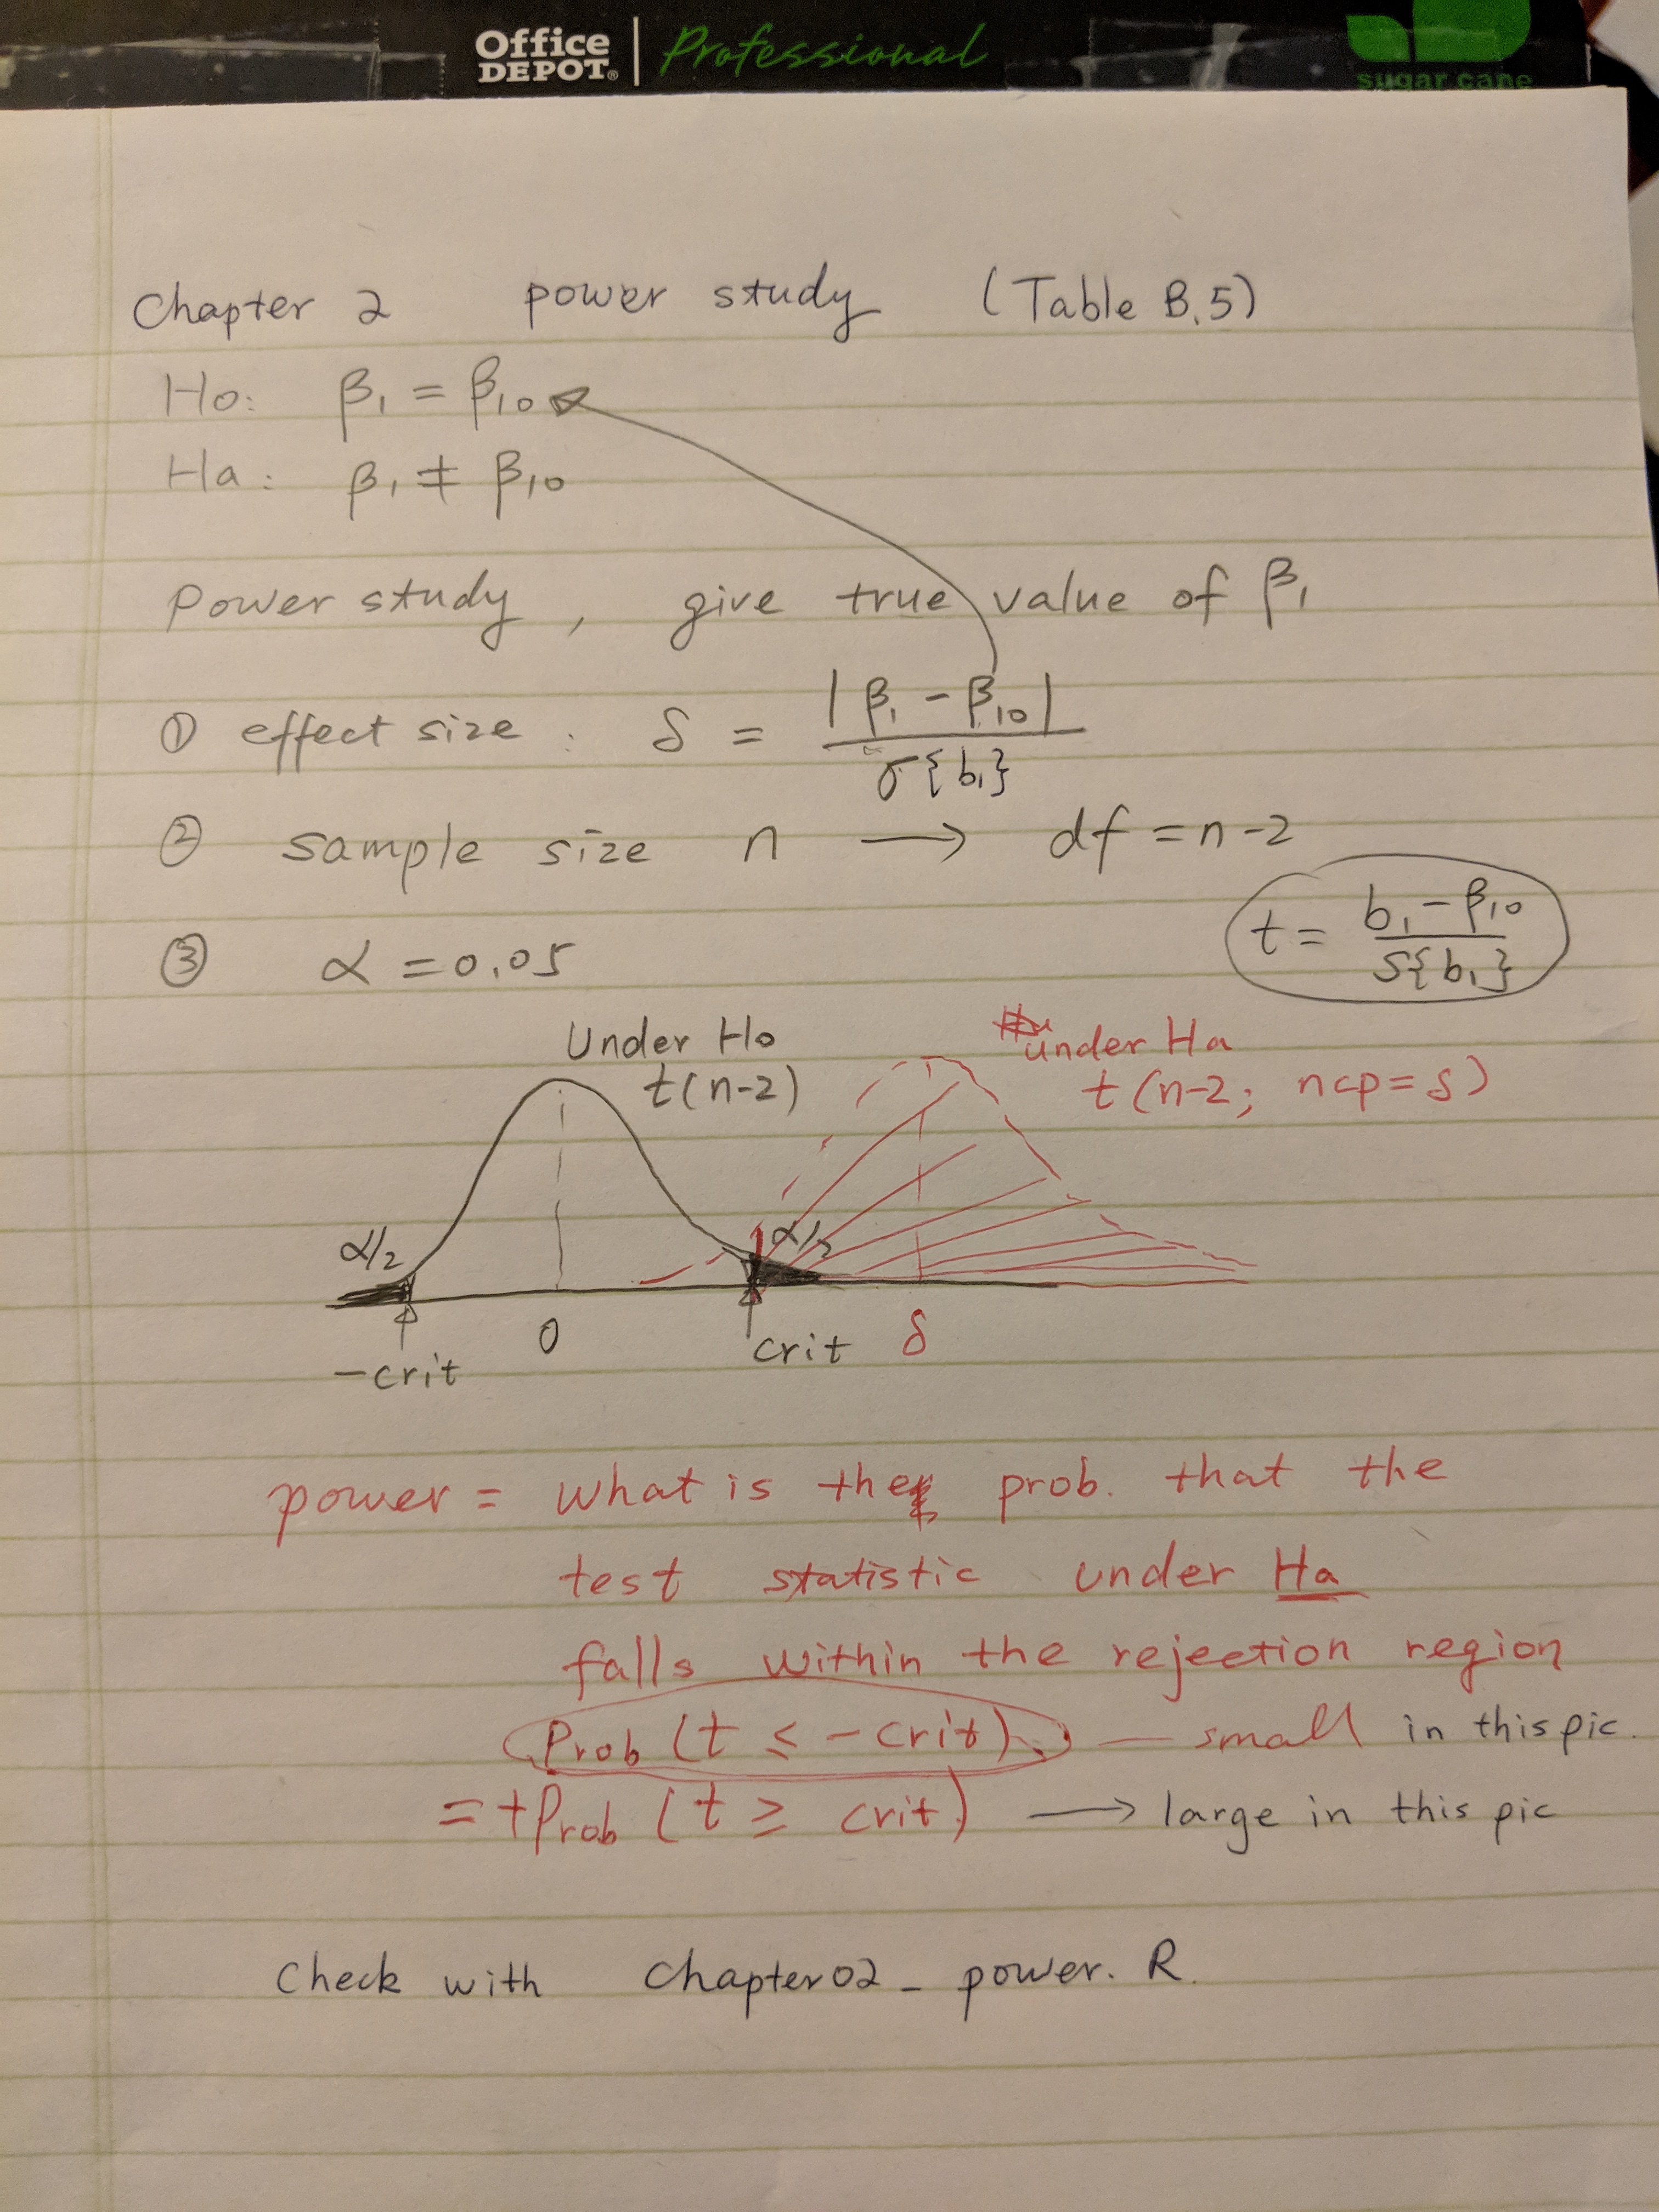 Office DEPOT® | Professional
sugar cane
Chapter 2 power study (Table B.5)
Ho: β₁ = β₁₀
Ha: β₁ ≠ β₁₀
Power study, give true value of β₁
① effect size: δ = |β₁ - β₁₀| / σ{b₁}
② sample size n → df = n-2
③ α = 0.05
t = (b₁ - β₁₀) / s{b₁}
Under Ho
t(n-2)
under Ha
t(n-2; ncp=δ)
α/2
α/2
-crit
0
crit
δ
power = what is the prob. that the
test statistic under Ha
falls within the rejection region
Prob (t ≤ -crit) — small in this pic.
= +Prob (t ≥ crit) → large in this pic
Check with Chapter02_power.R.